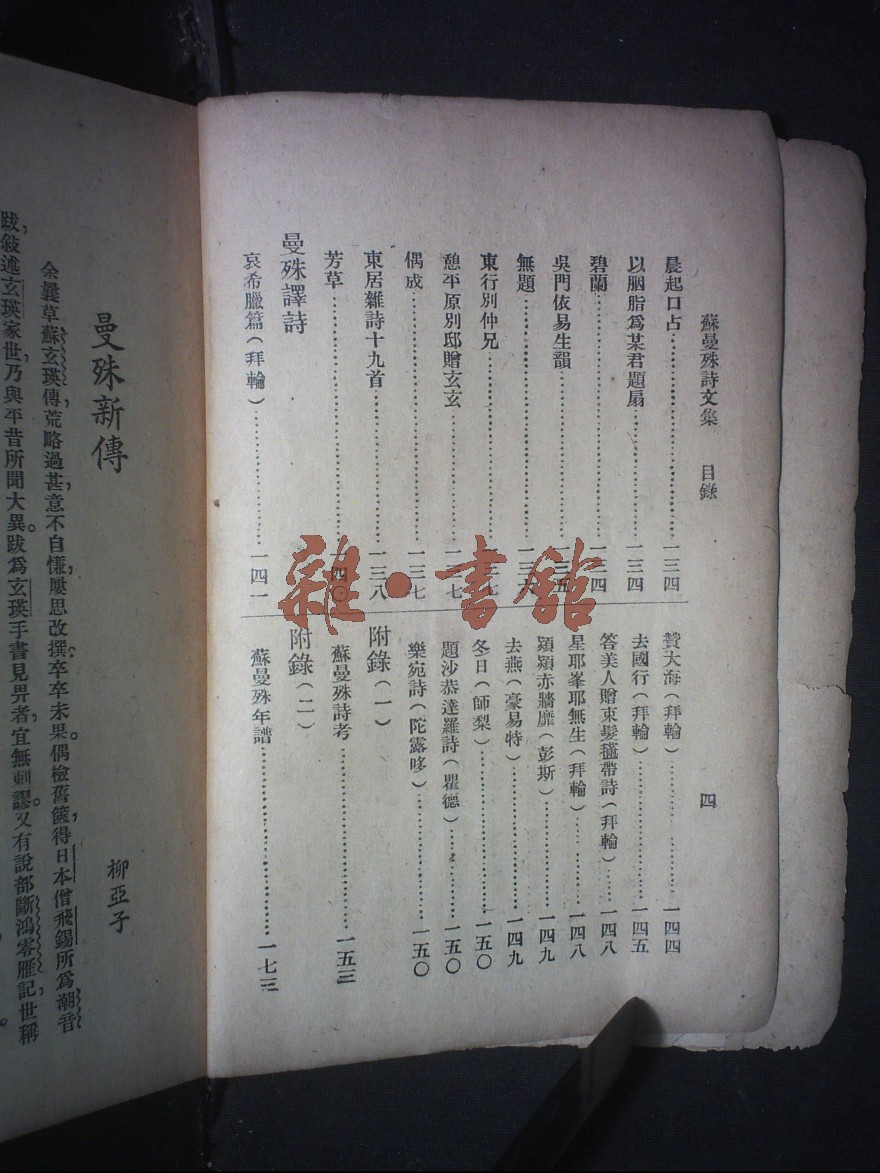 蘇曼殊詩文集 目錄 四
晨起口占 一三四
以胭脂為某君題扇 一三四
碧蘭 一三四
吳門依易生韻 一三五
無題 一三六
東行別仲兄
憩平原別邸贈玄玄 一三七
偶成 一三七
東居雜詩十九首 一三八
芳草 一四〇
曼殊譯詩
哀希臘篇（拜輪） 一四一
贊大海（拜輪） 一四四
去國行（拜輪） 一四五
答美人贈束髮𣰦帶詩（拜輪） 一四八
星耶峯耶無生（拜輪） 一四八
熲熲赤牆靡（彭斯） 一四九
去燕（豪易特） 一四九
冬日（師梨） 一五〇
題沙恭達羅詩（瞿德） 一五〇
樂宛詩（陀露哆） 一五〇
附錄（一）
蘇曼殊詩考 一五三
附錄（二）
蘇曼殊年譜 一七三
曼殊新傳
柳亞子
余曩草蘇玄瑛傳，荒略過甚，意不自慊，屢思改撰，卒卒未果。偶檢舊篋，得日本僧飛錫所為潮音
跋，敍述玄瑛家世，乃與平昔所聞大異。跋為玄瑛手書見畀者，宜無剌謬。又有說部斷鴻零雁記，世稱
雜·書館